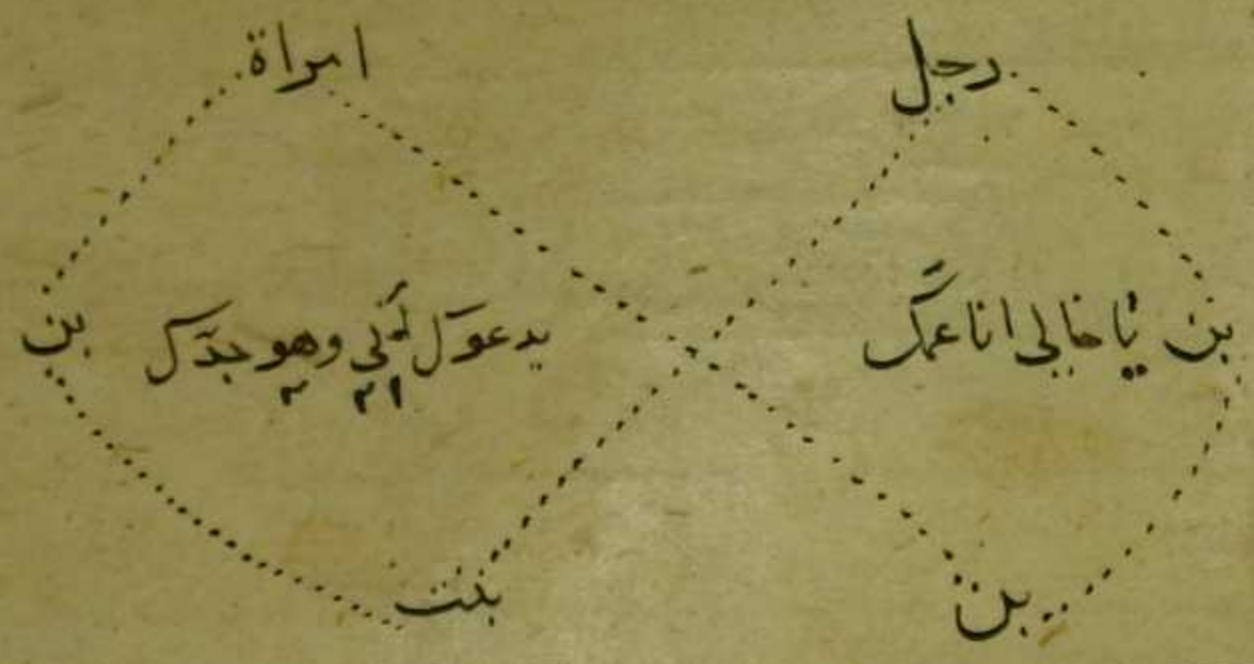 رجل امراة
بن يا خالي انا عمك يدعوك لي وهو جدك بن
بن بنت